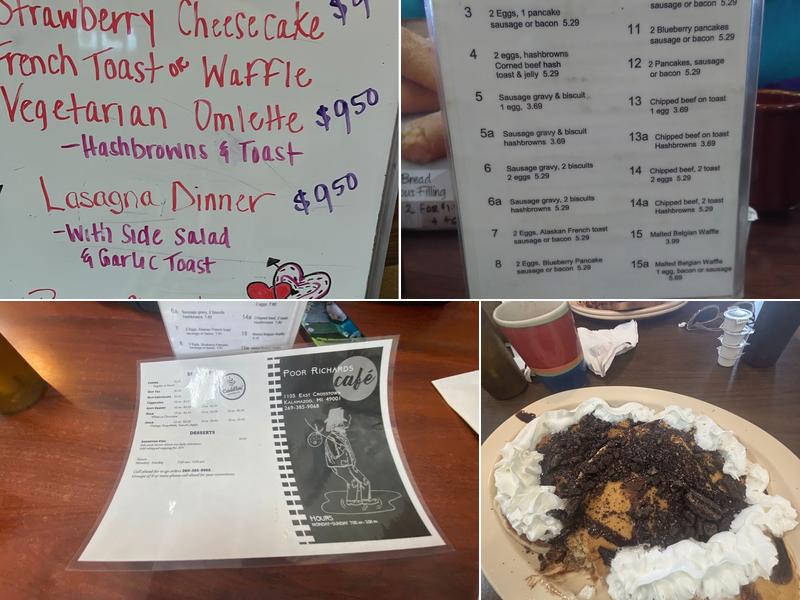 Strawberry Cheesecake $9
French Toast or Waffle
Vegetarian Omlette $9.50
-Hashbrowns & Toast
Lasagna Dinner $9.50
-With Side Salad
& Garlic Toast
3 2 Eggs, 1 pancake
sausage or bacon 5.29
4 2 eggs, hashbrowns
Corned beef hash
toast & jelly 5.29
5 Sausage gravy & biscuit
1 egg, 3.69
5a Sausage gravy & biscuit
hashbrowns 3.69
6 Sausage gravy, 2 biscuits
2 eggs 5.29
6a Sausage gravy, 2 biscuits
hashbrowns 5.29
7 2 Eggs, Alaskan French toast
sausage or bacon 5.29
8 2 Eggs, Blueberry Pancake
sausage or bacon 5.29
sausage or bacon 5.29
11 2 Blueberry pancakes
sausage or bacon 5.29
12 2 Pancakes, sausage
or bacon 5.29
13 Chipped beef on toast
1 egg 3.69
13a Chipped beef on toast
Hashbrowns 3.69
14 Chipped beef, 2 toast
2 eggs 5.29
14a Chipped beef, 2 toast
Hashbrowns 5.29
15 Malted Belgian Waffle
3.99
15a Malted Belgian Waffle
1 egg, bacon or sausage
5.69
Bread
Filling
2 For
DESSERTS
Call ahead for to-go orders 269-385-9068
Poor Richards
café
1105 East Crosstown
Kalamazoo, MI 49001
269-385-9068
Hours
Monday-Sunday 7:00 am - 2:00 pm